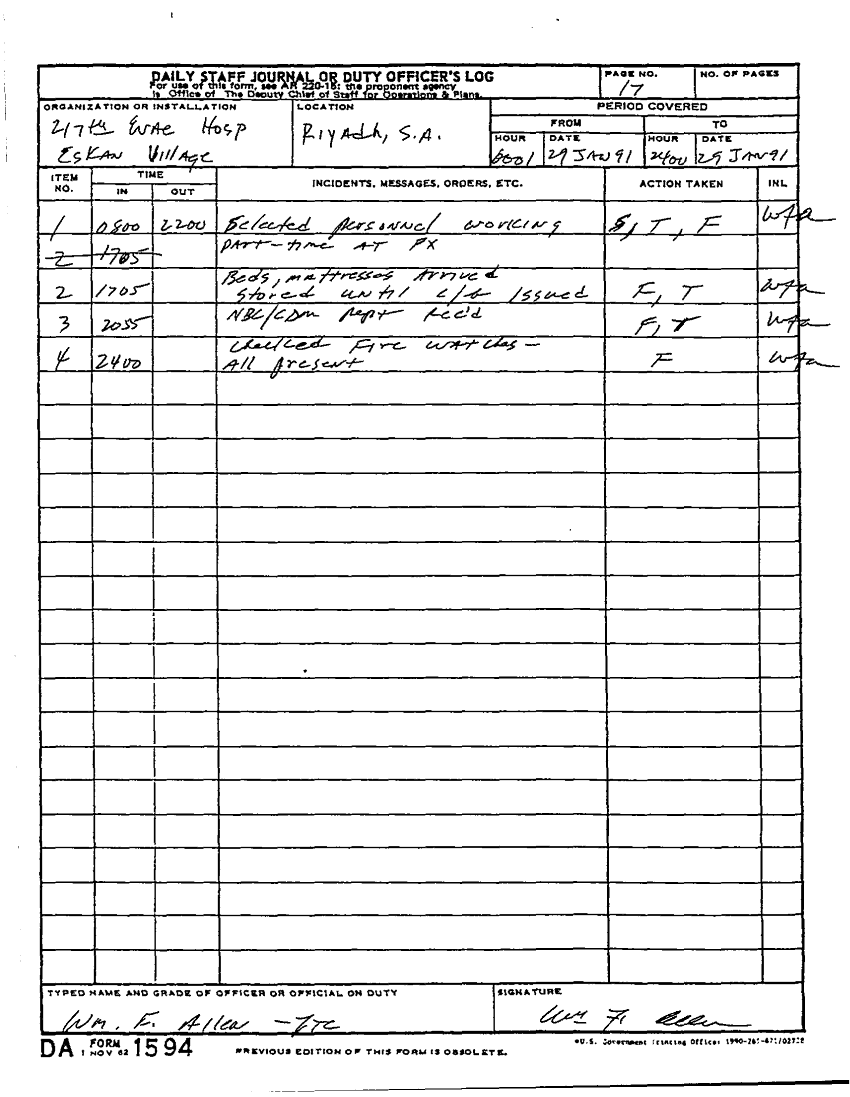 DAILY STAFF JOURNAL OR DUTY OFFICER'S LOG
For use of this form, see AR 220-15; the proponent agency
is Office of The Deputy Chief of Staff for Operations & Plans.
PAGE NO.
17
NO. OF PAGES
ORGANIZATION OR INSTALLATION
217th Evac Hosp
Eskan Village
LOCATION
Riyadh, S.A.
PERIOD COVERED
FROM
TO
HOUR DATE HOUR DATE
0001 29 JAN 91 2400 29 JAN 91
ITEM NO.
TIME
IN OUT
INCIDENTS, MESSAGES, ORDERS, ETC.
ACTION TAKEN
INL
1 0800 2200 Selected personnel working S, T, F wfa
2 1705 part-time AT PX
Beds, mattresses Arrived
2 1705 stored until Issued F, T wfa
3 2055 NBC/CDM Rept Rec'd F, T wfa
Checked Fire watches -
4 2400 All present F wfa
TYPED NAME AND GRADE OF OFFICER OR OFFICIAL ON DUTY
Wm. F. Allen
SIGNATURE
Wm F Allen
DA FORM 1594
1 NOV 62
PREVIOUS EDITION OF THIS FORM IS OBSOLETE.
*U.S. Government Printing Office: 1990-261-871/02728